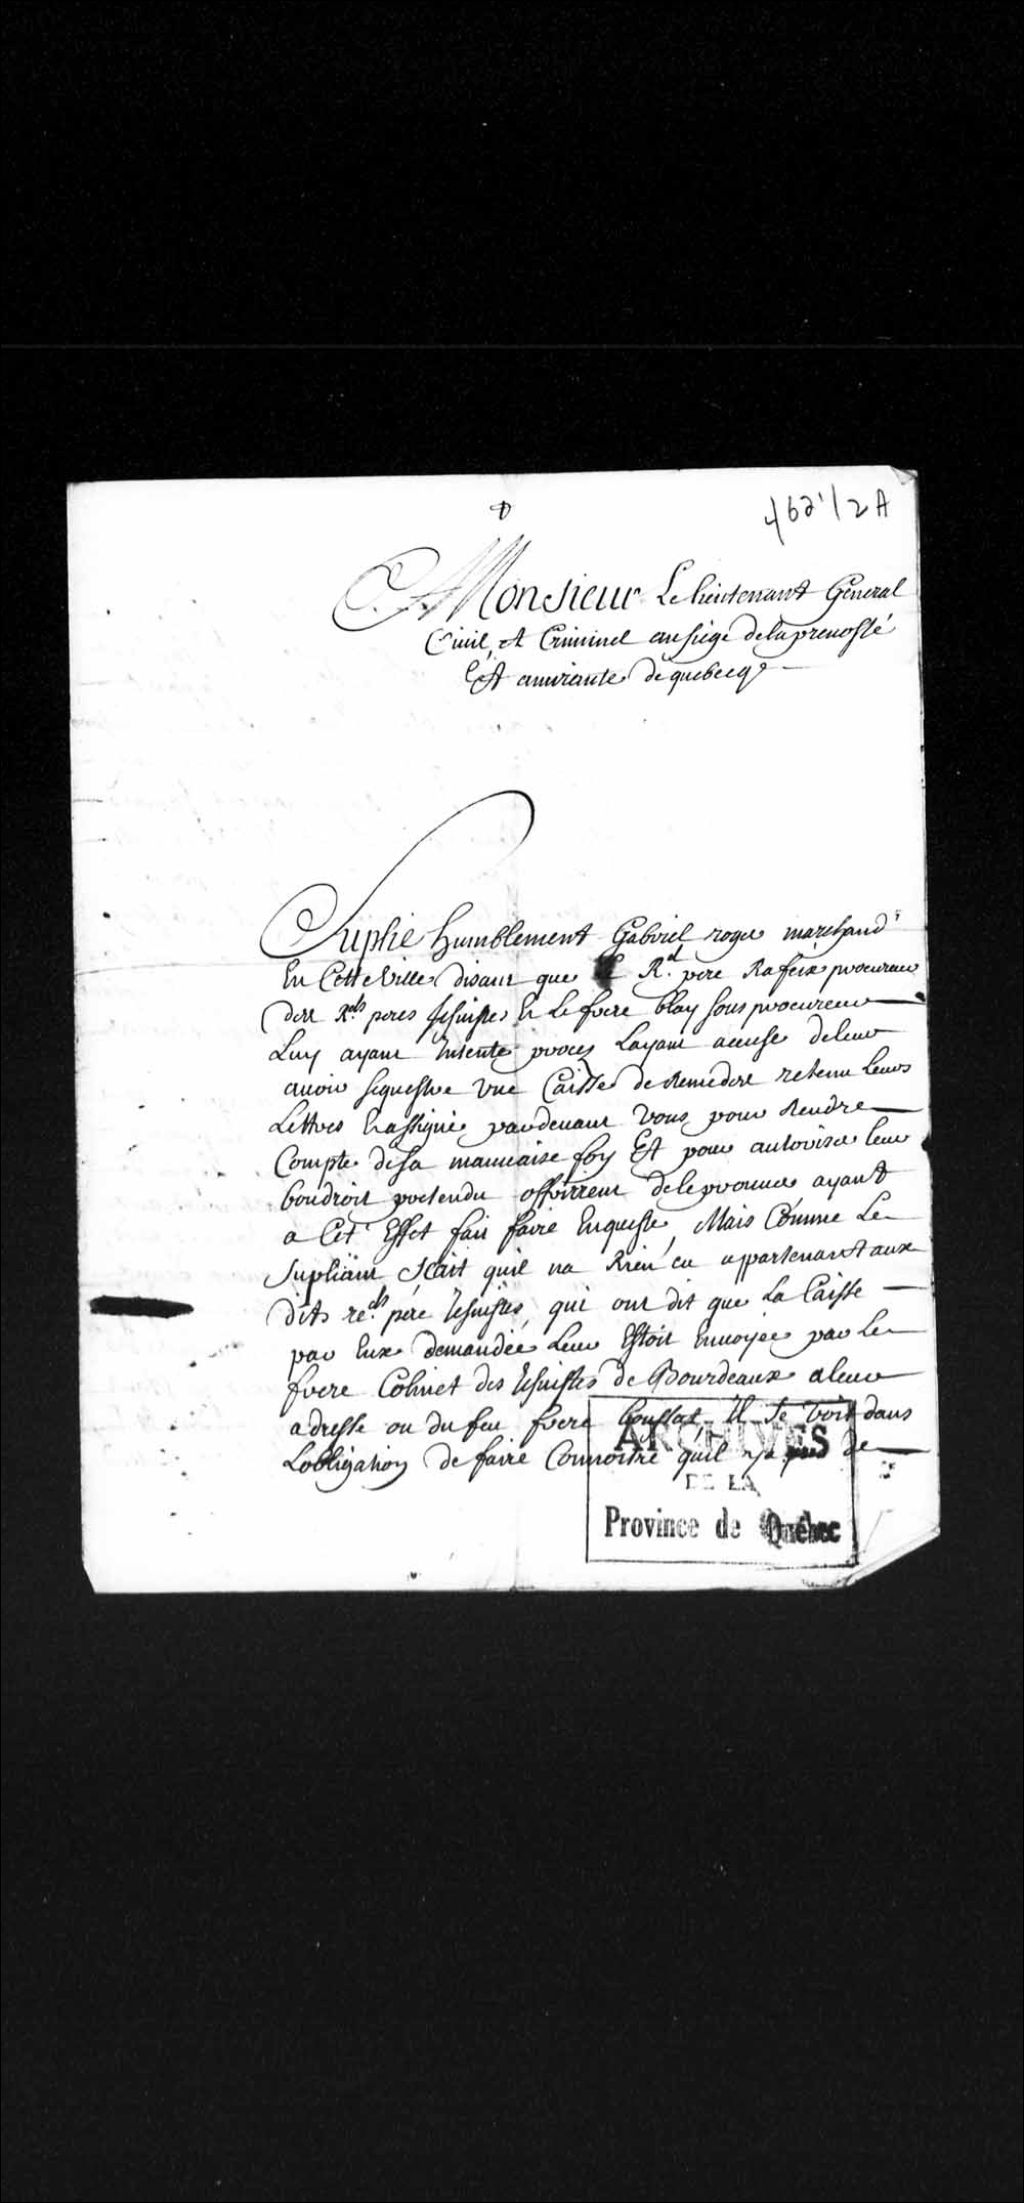 462 1/2 A
A Monsieur Le lieutenant General
Ciuil, et Criminel au siege de la preuosté
Et amirauté de quebecq
Suplie humblement Gabriel roger marchand
En Cette Ville disant que le R.d pere Rafeix procureur
des R.ds peres Jesuistes Et Le frere blay sous procureur
Luy ayant Intenté proces Layant accusé de leur
auoir sequestré Vne Caisse de Remedes retenu leurs
Lettres Et assigné pardeuant Vous pour Rendre
Compte de sa mauuaise foy Et pour autoriser leur
bon droit pretendu offrirent de le prouuer ayant
a Cet Effet fait faire Enqueste, Mais Comme Le
Supliant scait quil na Rien eu appartenant aux
dits re.ds pere Jesuistes, qui ont dit que La Caisse
par Eux demandée Leur Estoit Enuoyée par le
frere Colinet des Jesuistes de Bourdeaux a leur
adresse ou du feu frere Boussat, Il se voit dans
Lobligation de faire Connoistre quil ny a pas de
ARCHIVES
DE LA
Province de Québec